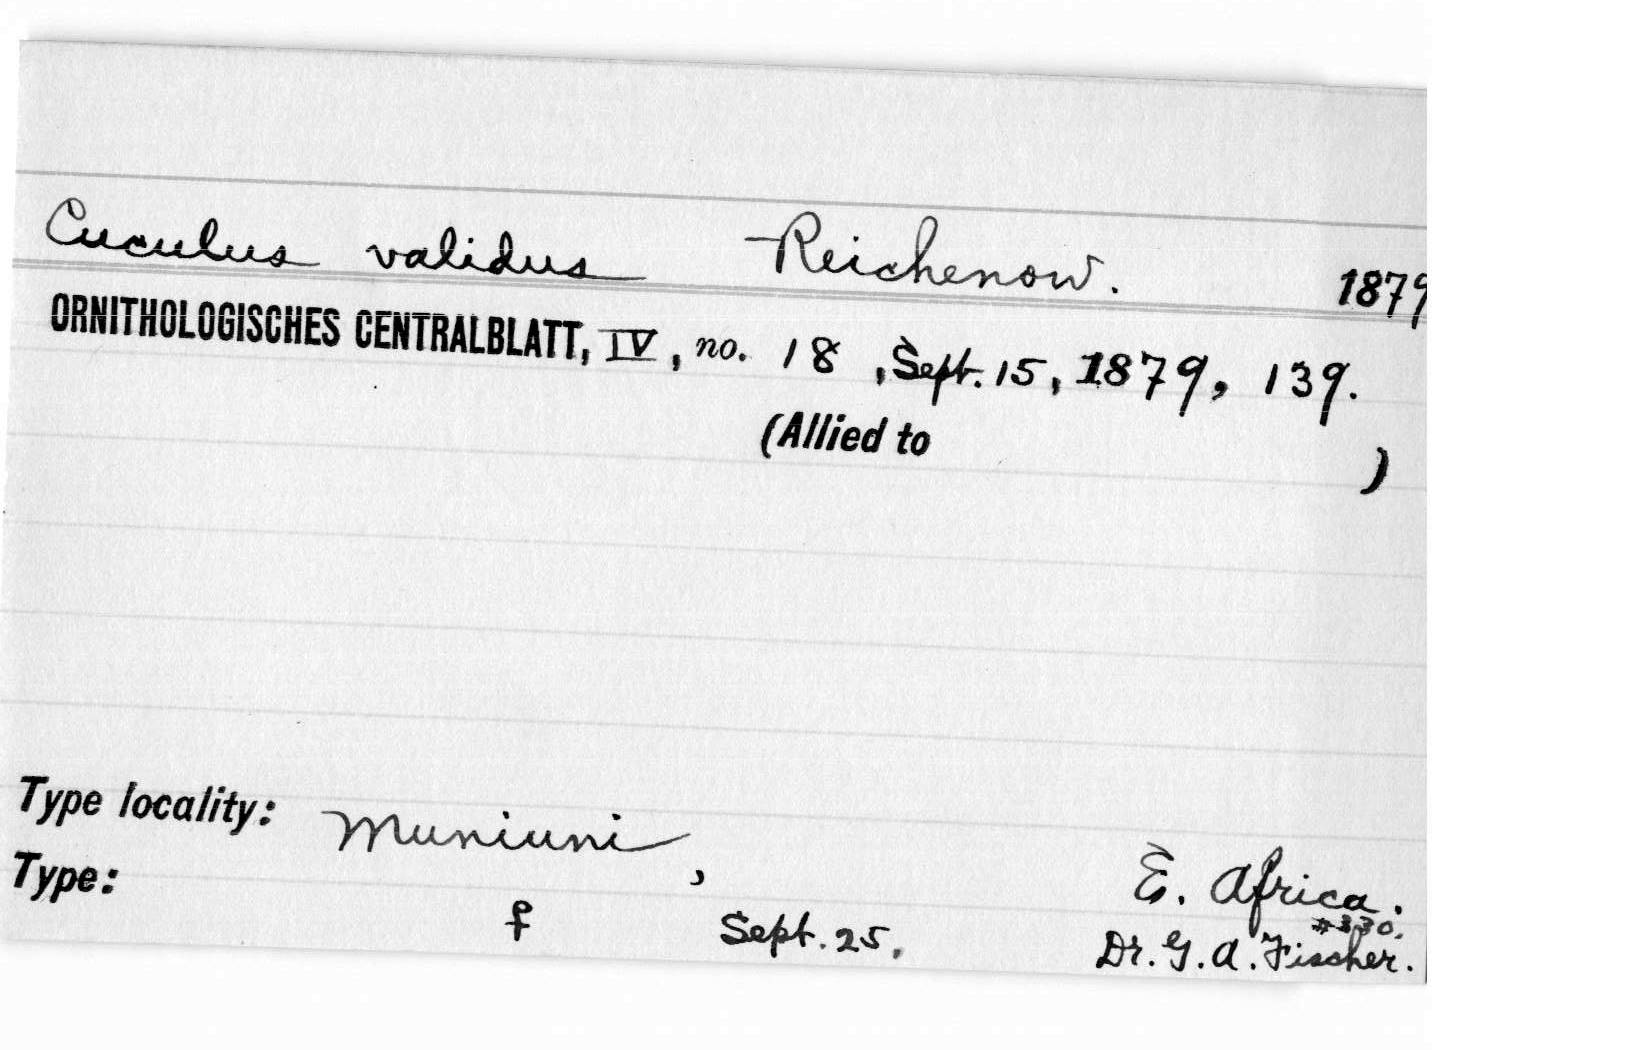 Cuculus validus Reichenow. 1879
ORNITHOLOGISCHES CENTRALBLATT, IV, no. 18, Sept. 15, 1879, 139.
(Allied to )
Type locality: Muniuni, E. Africa.
#330.
Type: ♀ Sept. 25, Dr. G. A. Fischer.